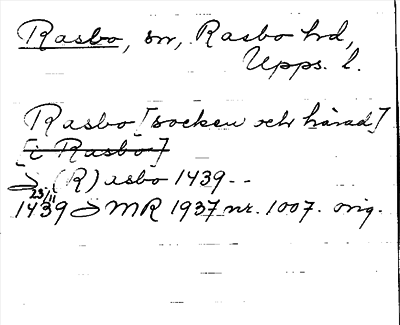 Rasbo, sn, Rasbo hd,
Upps. l.
Rasbo [socken och härad]
[i Rasbo]
(R)asbo 1439--
23/11
1439 MR 1937 nr. 1007. orig.